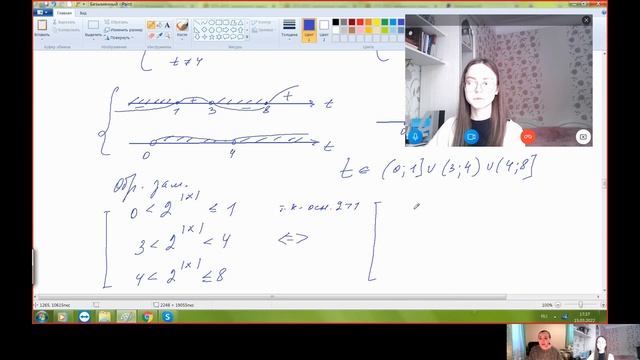 Безымянный - Paint
Главная
Вид
Вырезать
Копировать
Вставить
Выделить
Обрезать
Изменить размер
Повернуть
Буфер обмена
Изображение
Инструменты
Фигуры
Контур
Заливка
Толщина
Цвет 1
Цвет 2
t ≠ 4
− + − +
1 3 8 t
0 4 t
t ∈ (0;1] ∪ (3;4) ∪ (4;8]
Обр. зам.
0 < 2^|x| ≤ 1 т.к. осн. 2>1
3 < 2^|x| < 4 <=>
4 < 2^|x| ≤ 8
1265, 10615пкс
2248 × 19055пкс
100%
RU
17:17
15.03.2022